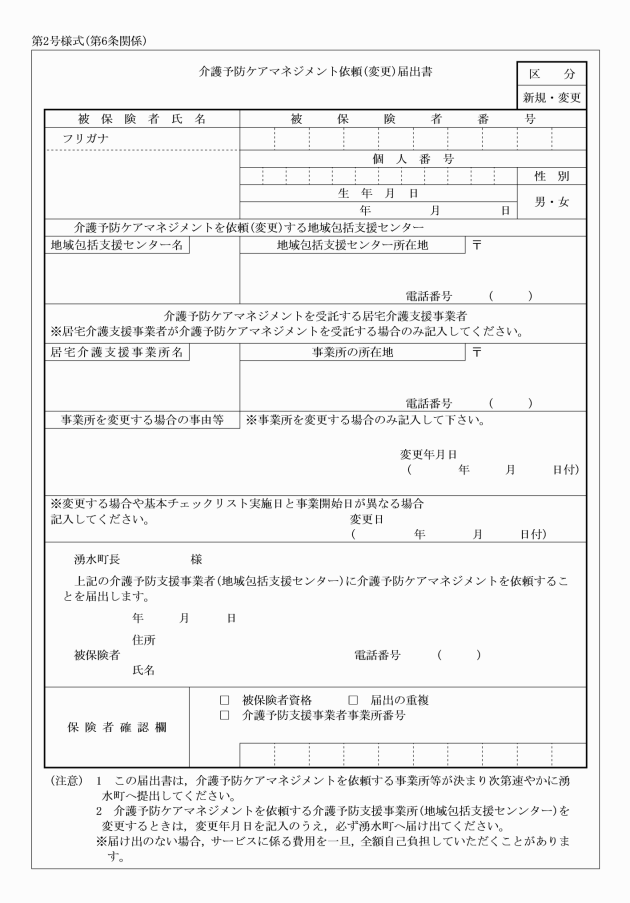 第2号様式(第6条関係)
介護予防ケアマネジメント依頼(変更)届出書
区　分
新規・変更
被保険者氏名
被保険者番号
フリガナ
個人番号
性別
生年月日
男・女
年　月　日
介護予防ケアマネジメントを依頼(変更)する地域包括支援センター
地域包括支援センター名
地域包括支援センター所在地
〒
電話番号　(　)
介護予防ケアマネジメントを受託する居宅介護支援事業者
※居宅介護支援事業者が介護予防ケアマネジメントを受託する場合のみ記入してください。
居宅介護支援事業所名
事業所の所在地
〒
電話番号　(　)
事業所を変更する場合の事由等
※事業所を変更する場合のみ記入して下さい。
変更年月日
(　年　月　日付)
※変更する場合や基本チェックリスト実施日と事業開始日が異なる場合
記入してください。
変更日
(　年　月　日付)
湧水町長　様
上記の介護予防支援事業者(地域包括支援センター)に介護予防ケアマネジメントを依頼するこ
とを届出します。
年　月　日
住所
被保険者
電話番号　(　)
氏名
保険者確認欄
□　被保険者資格　□　届出の重複
□　介護予防支援事業者事業所番号
(注意)　1　この届出書は，介護予防ケアマネジメントを依頼する事業所等が決まり次第速やかに湧
水町へ提出してください。
2　介護予防ケアマネジメントを依頼する介護予防支援事業所(地域包括支援センンター)を
変更するときは，変更年月日を記入のうえ，必ず湧水町へ届け出てください。
※届け出のない場合，サービスに係る費用を一旦，全額自己負担していただくことがありま
す。